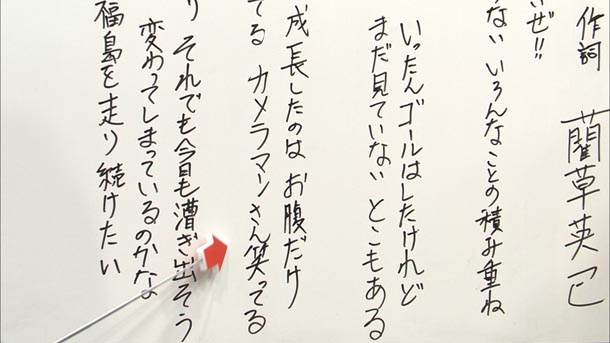 作詞 藺草英己
いぜ!!
らない いろんなことの積み重ね
いったんゴールはしたけれど
まだ見ていない とこもある
成長したのは お腹だけ
てる カメラマンさん笑ってる
り それでも今日も漕ぎ出そう
変わってしまっているのかな
福島を走り続けたい